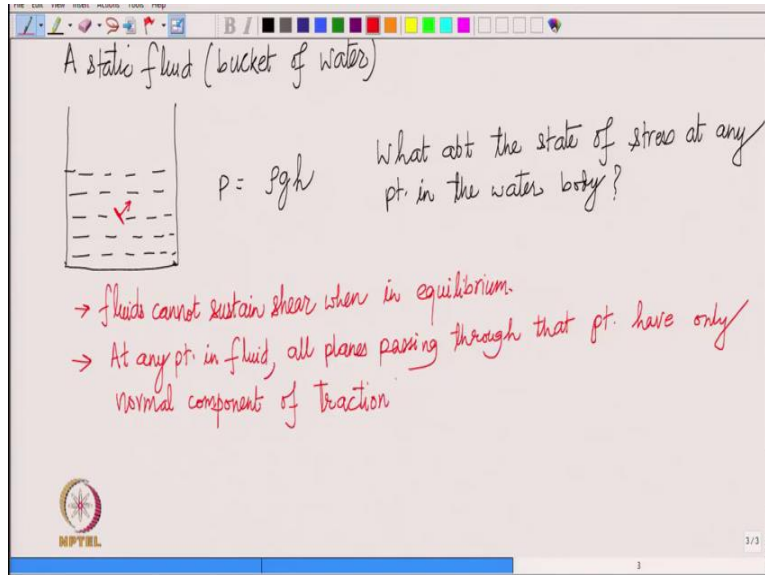 File Edit View Insert Actions Tools Help
B I
A static fluid (bucket of water)
p = ρgh
What abt the state of stress at any
pt. in the water body?
→ fluids cannot sustain shear when in equilibrium.
→ At any pt. in fluid, all planes passing through that pt. have only
normal component of traction
NPTEL
3/3
3